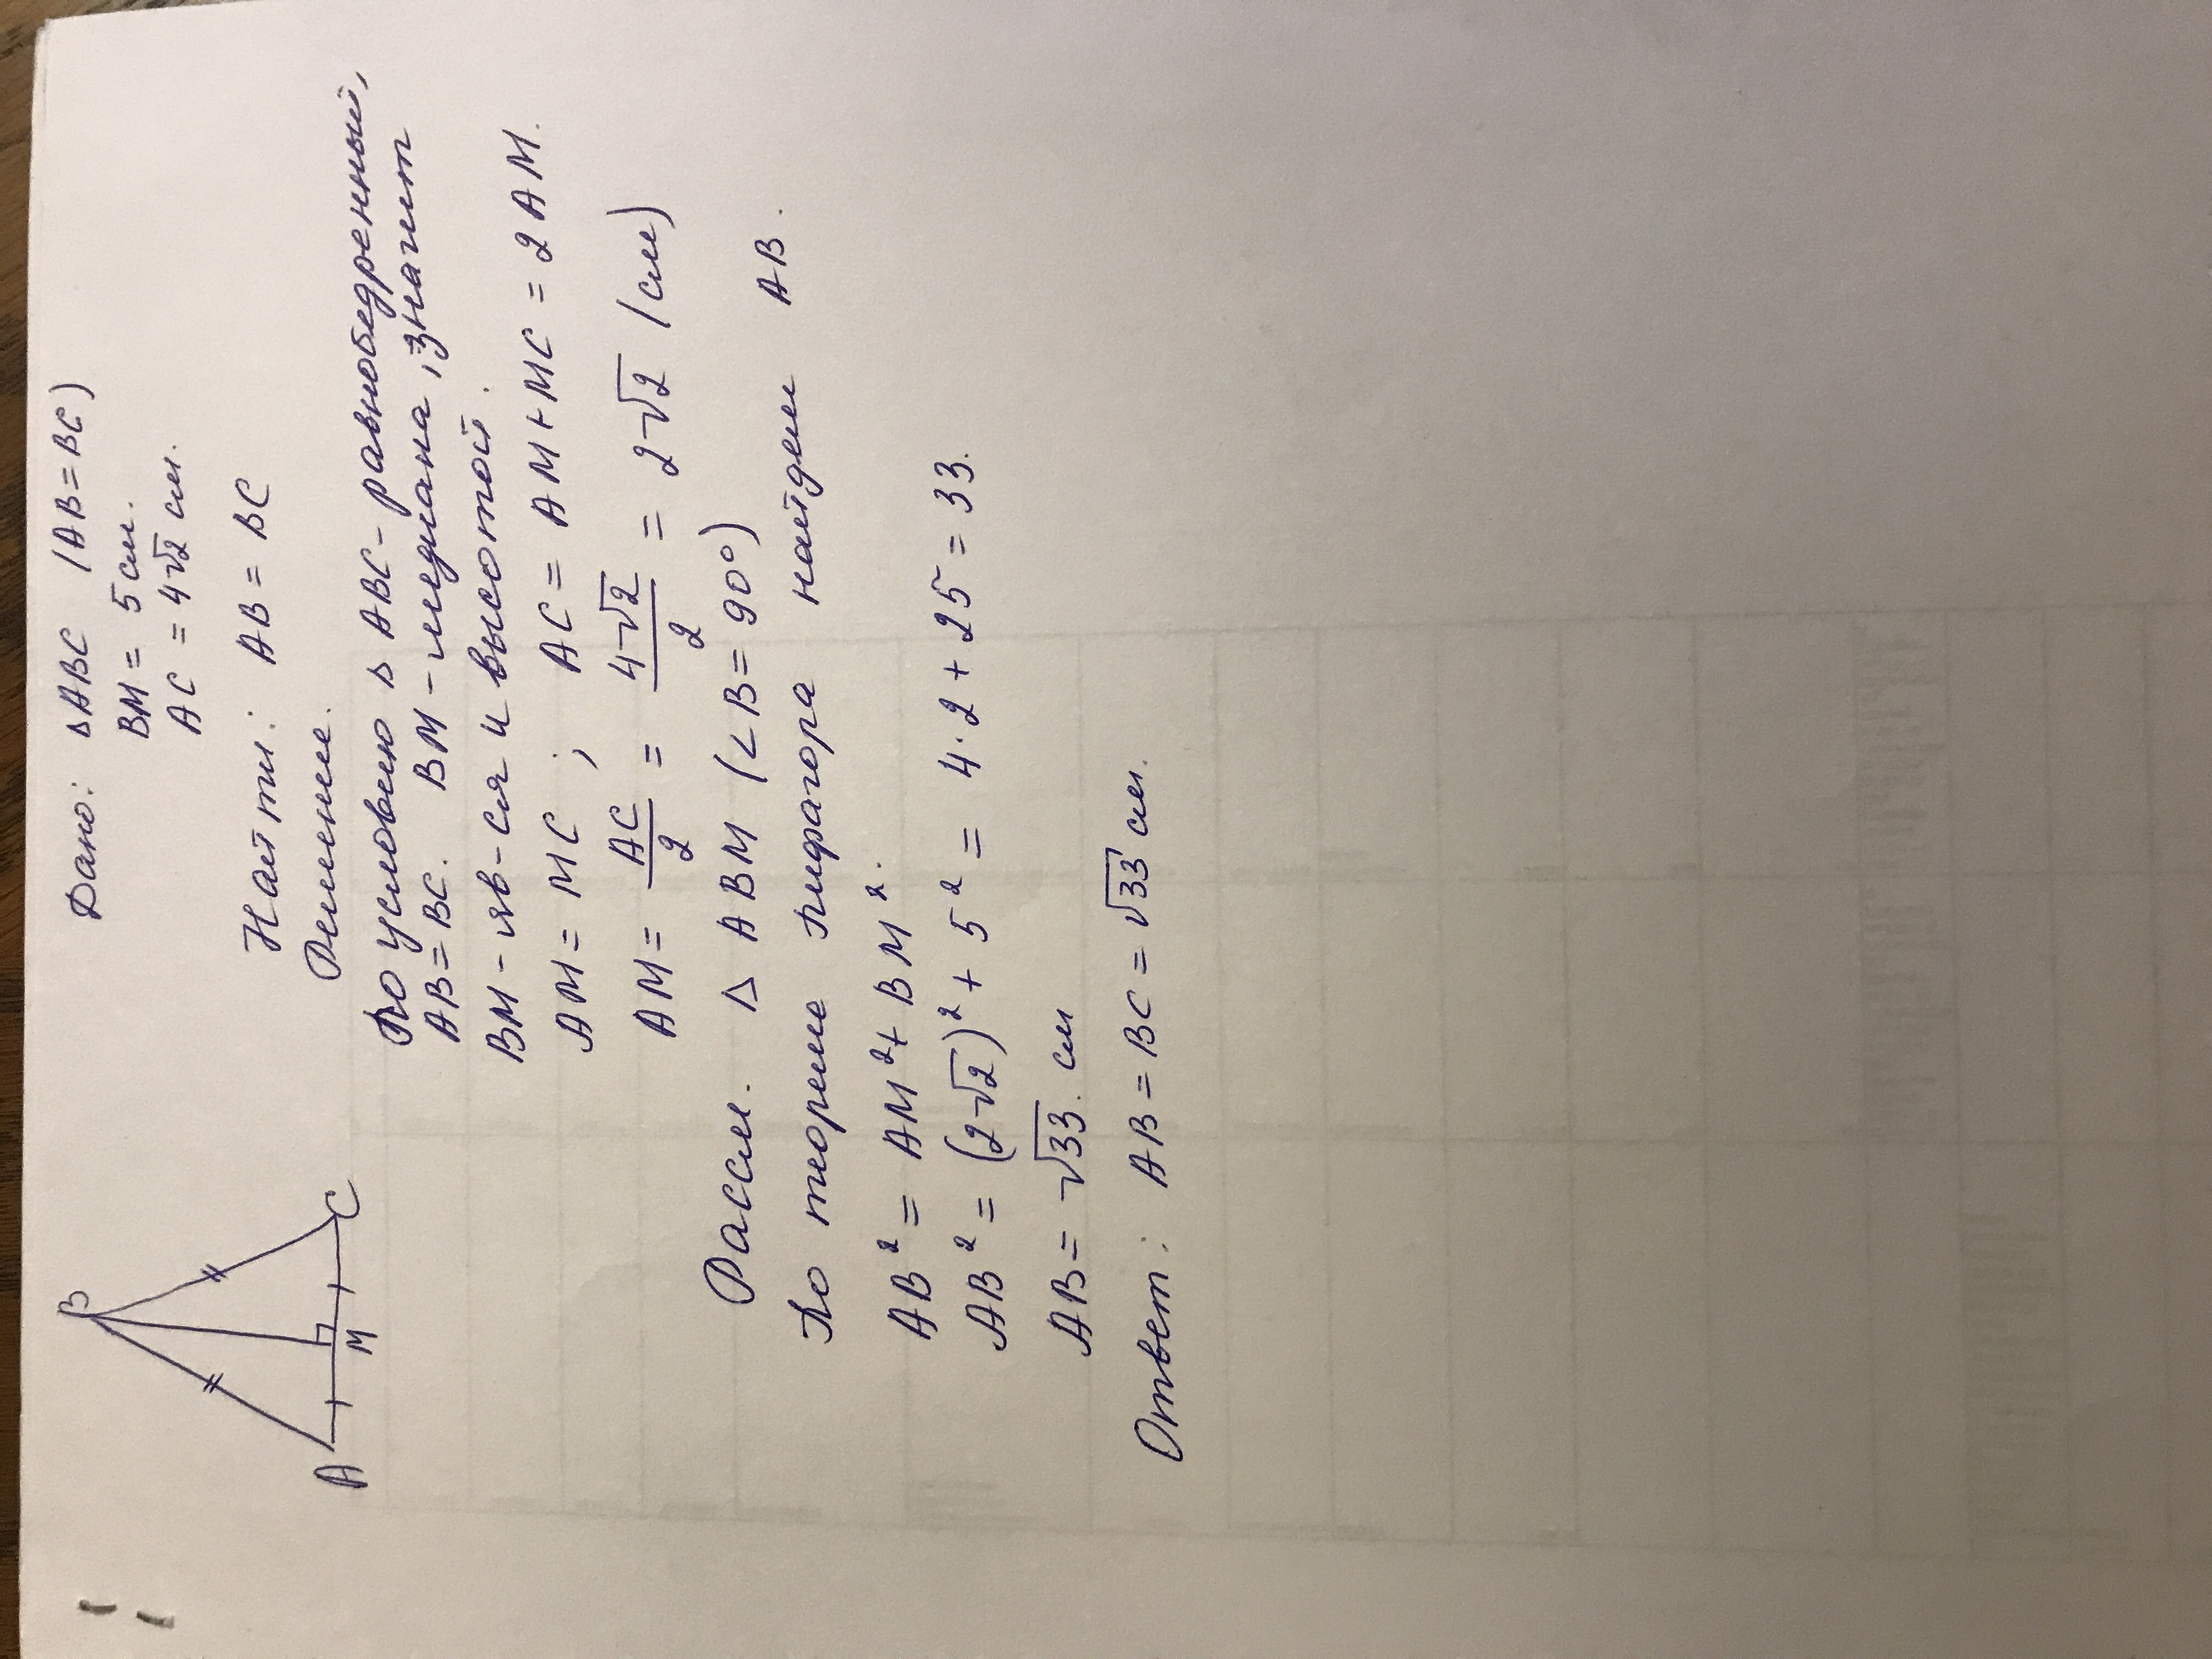 B
A
M
C
Дано: △ABC (AB=BC)
BM = 5 см.
AC = 4√2 см.
Найти: AB = BC
Решение.
По условию △ ABC - равнобедренный,
AB=BC. BM - медиана, значит
BM - явл-ся и высотой.
AM = MC ; AC = AM+MC = 2AM.
AM = AC/2 = 4√2/2 = 2√2 (см)
Рассм. △ ABM (∠B=90°)
По теореме пифагора найдем AB.
AB² = AM² + BM².
AB² = (2√2)² + 5² = 4·2 + 25 = 33.
AB = √33. см
Ответ: AB = BC = √33 см.